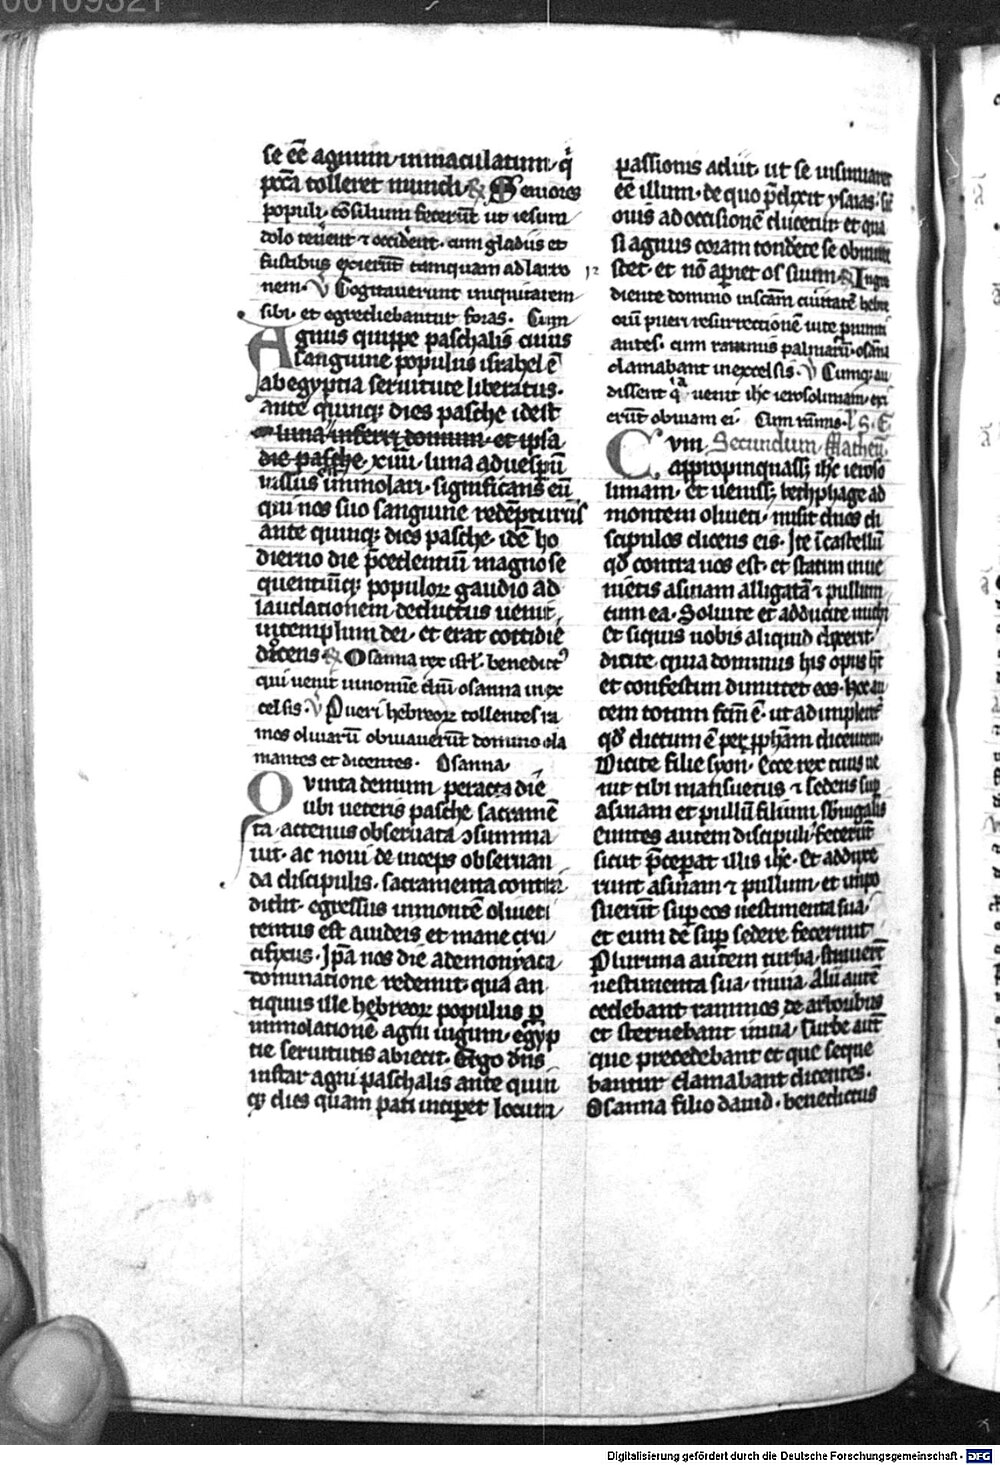 00109321
se eē agnum inmaculatum· q̇
pcc̄a tolleret mundi· R Seniores
populi· cōsilium fecerūt ut iesum
dolo tenerēt ⁊ occiderēt· cum gladiis et
fustibus exierūt tamquam ad latro
nem· V Cogitauerunt iniquitatem
sibi· et egrediebantur foras· Cum
Agnus quippe paschalis cuius
sanguine populus israhel ē
ab egyptia seruitute liberatus·
ante quinq; dies pasche idest
luna inferri domum· et ipsa
die pasche· xiiii luna aduesꝑū
iussus immolari· significans eū
qui nos suo sanguine redēpturus
ante quinq; dies pasche· idē ho
dierno die p̄cedentiū magno se
quentiūq; populoꝝ gaudio ad
laudationem deductus uenit
in templum dei· et erat cottidie
docens R Osanna rex isrl̄· benedictꝰ
qui uenit in nomīe dn̄i osanna in ex
celsis· V Pueri hebreoꝝ tollentes ra
mos oliuarū obuiauerūt domino cla
mantes et dicentes· Osanna
Quinta demum peracta die
ubi ueteris pasche sacramē
ta· actenus obseruata ɔsumma
uit· ac noui de inceps obseruan
da discipulis· sacramenta contra
didit· egressus in montē oliueti
tentus est a iudeis et mane cru
cifixus· Ip̄a nos die a demoniaca
dominatione redemit· qua an
tiquus ille hebreoꝝ populus ꝑ
immolationē agni iugum· egyp
tie seruitutis abiecit· Ergo dn̄s
instar agni paschalis ante quin
q; dies quam pati inciꝑet locum
passionis adiit· ut se insinuaret
eē illum· de quo p̄dixit ysaias· sic
ouis ad occisionē ducetur· et qua
si agnus coram tondēte se obmute
scet· et nō aꝑiet os suum R Ingre
diente domino in scām ciuitatē hebre
orū pueri resurrectionē uite pronunti
antes· cum ramis palmarū· osāna
clamabant in excelsis· V Cumq; au
dissent qa uenit ihc ierosolimam· exi
erūt obuiam ei· Cum rāmis·
Cum Secundum Matheū
appropinquass; ihc ieroso
limam· et ueniss; bethphage ad
montem oliueti· misit duos di
scipulos dicens eis· Ite ī castellū
qd̄ contra uos est· et statim inue
nietis asinam alligatā ⁊ pullum
cum ea· Soluite et adducite michi
Et siquis uobis aliquid dixerit
dicite· quia dominus his opus ht̄
et confestim dimittet eos· Hoc au
tem totum fc̄m ē· ut adimpleretꝰ
qd̄ dictum ē per ꝓph̄am dicentem·
Dicite filie syon· Ecce rex tuus ue
nit tibi mansuetus ⁊ sedens suꝑ
asinam et pullū filium subiugalis
Euntes autem discipuli fecerūt
sicut p̄ceperat illis ihc· Et adduxe
runt asinam ⁊ pullum· et inpo
suerūt suꝑ eos uestimenta sua
et eum de suꝑ sedere fecerunt
Plurima autem turba· strauerūt
uestimenta sua· in uia· Alii autē
cedebant rammos de arboribus
et sternebant in uia· Turbe aūt
que precedebant et que seque
bantur clamabant dicentes·
Osanna filio dauid· benedictus
Digitalisierung gefördert durch die Deutsche Forschungsgemeinschaft - DFG